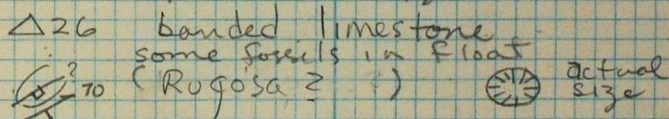 △26 banded limestone
some fossils in float
? 70 (Rugosa ? ) actual
size